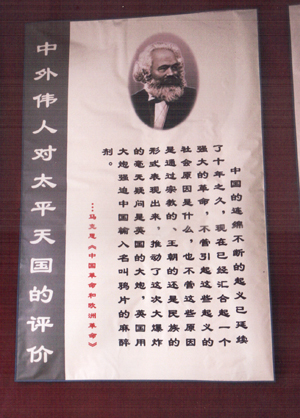 中外伟人对太平天国的评价
中国的连绵不断的起义已延续
了十年之久，现在已经汇合起一个
强大的革命，不管引起这些起义的
社会原因是什么，也不管这些原因
是通过宗教的、王朝的还是民族的
形式表现出来，推动了这次大爆炸
的毫无疑问是英国的大炮，英国用
大炮强迫中国输入名叫鸦片的麻醉
剂。
…马克思《中国革命和欧洲革命》